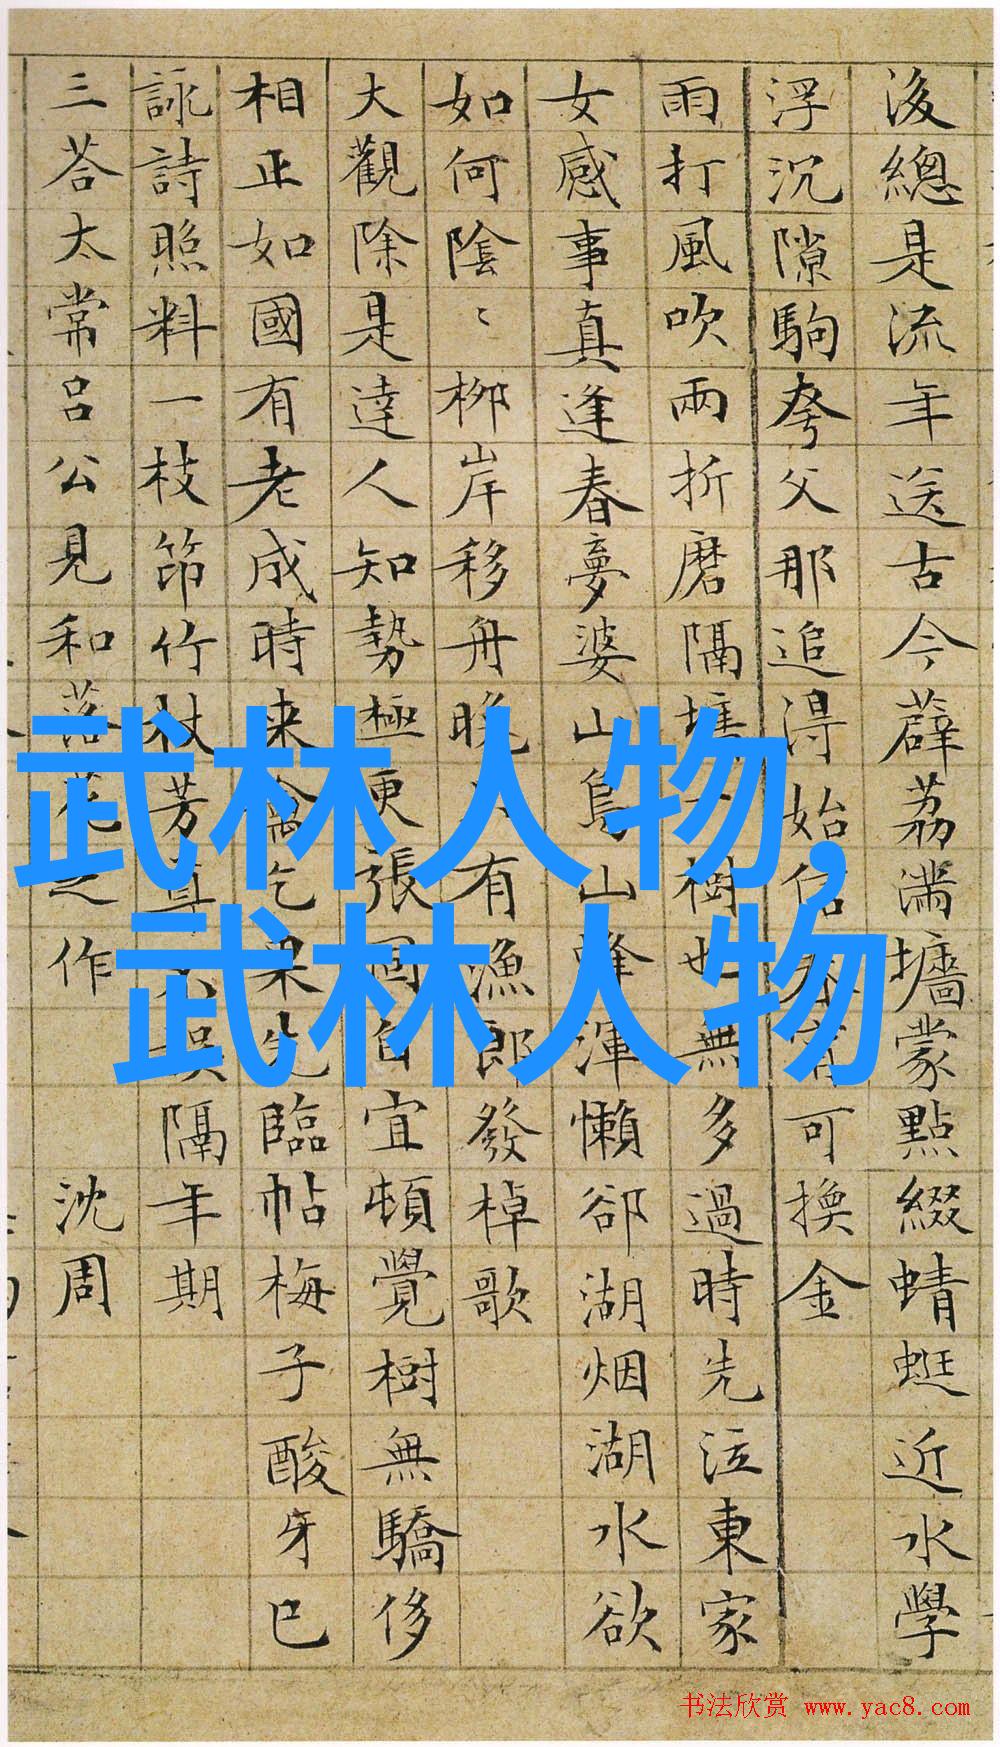 後總是流年送古今薜荔滿墻蒙點綴蜻蜓近水學
浮沉隙駒夸父那追得始信可換金
雨打風吹兩折磨隔墻一樹也無多過時先泣東家
女感事真逢春夢婆山鳥山蜂渾懶卻湖烟湖水欲
如何陰〻柳岸移舟晚有漁郎發棹歌
大觀除是達人知勢極更張固自宜頓覺樹無驕侈
相正如國有老成時来禽乞果先臨帖梅子酸牙巳
詠詩照料一枝笻竹杖芳尊誤隔年期
三荅太常呂公見和落花之作 沈周
武林人物,
武林人物
书法欣赏 www.yac8.com